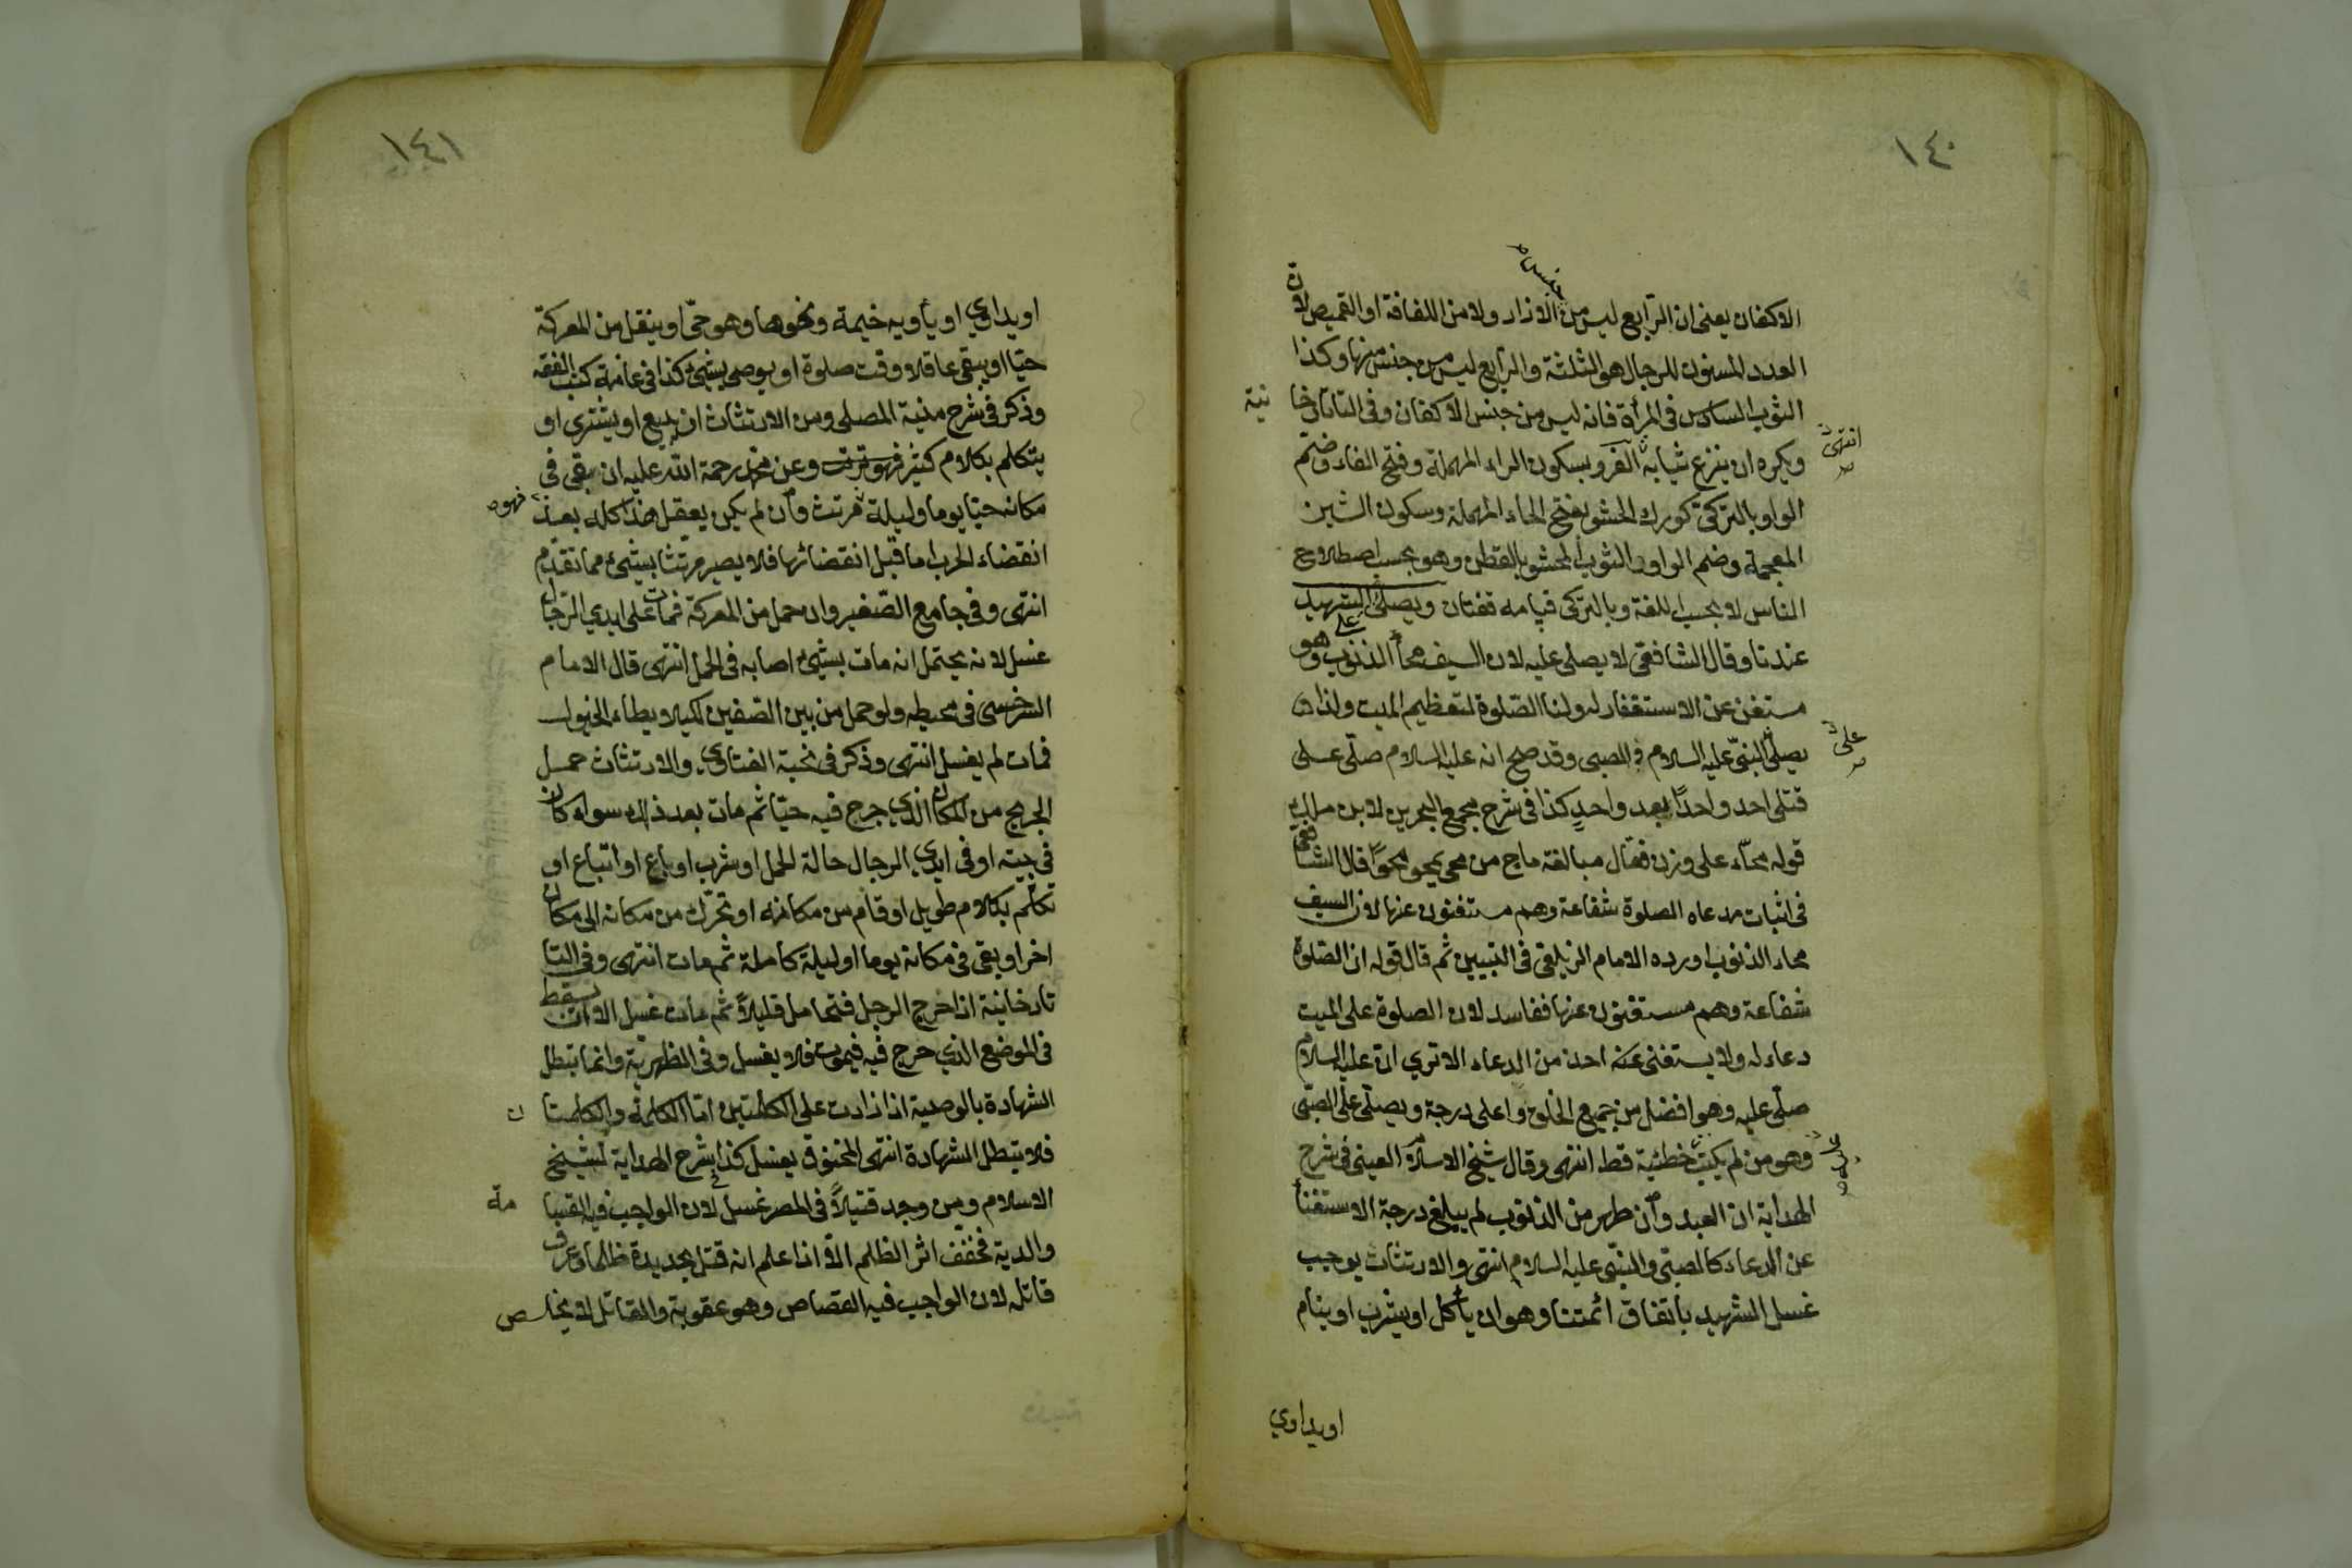 ١٤٠
الاكفان يعنى ان الرّابع ليس من جنس الازار ولا من اللفافة او القميص لان
العدد المسنون للرجال هو الثلثة والرّابع ليس من جنس منها وكذا
الثوب السادس فى المرأة فانه ليس من جنس الاكفان وفى التاتارخانية
ويكره ان ينزع ثيابه انتهى الفرو بسكون الراء المهملة وفتح الفاء وضمّ
الواو بالتركى كورك الحشو بفتح الحاء المهملة وسكون الشين
المعجمة وضم الواو الثوب المحشو بالقطن وهو بحسب اصطلاح
الناس لا بحسب اللغة وبالتركى قپامه قفتان ويصلى على الشهيد
عندنا وقال الشافعى لا يصلى عليه لان السيف محاء الذنوب وهو
مستغن عن الاستغفار له ولنا الصّلوة لتعظيم الميت ولذا
يصلى على النبىّ عليه السلام والصبى وقد صح انه عليه السلام صلّى على
قتلى احد واحدًا بعد واحدٍ كذا فى شرح مجمع البحرين لابن مالك
قوله محّاء على وزن فعّال مبالغة ماح من محى يمحو محوًا قال الشافعى
فى اثبات مدعاه الصلوة شفاعة وهم مستغنون عنها لان السيف
محاء الذنوب اورده الامام الزيلعى فى التبيين ثم قال قوله ان الصّلوة
شفاعة وهم مستغنون عنها ففاسد لان الصلوة على الميت
دعاء له ولا يستغنى عنه احد من الدعاء الا تري انه عليه السلام
صلّى عليه وهو افضل من جميع الخلق واعلى درجة ويصلّى على الصبّى
وهو من لم يكتب عليه خطئية قط انتهى وقال شيخ الاسلام العينى فى شرح
الهداية ان العبد وان طهر من الذنوب لم يبلغ درجة الاستغناء
عن الدعاء كالصبّى والنبّى عليه السلام انتهى والارتثاث يوجب
غسل الشهيد باتفاق ائمتنا وهو ان يأكل او يشرب او ينام
اويداوي
١٤١
اويداوي او يأويه خيمة ونحوها وهو حىّ او ينقل من المعركة
حيّا او يبقى عاقلا وقت صلوة او يوصى بشئ كذا فى عامة كتب الفقه
وذكر فى شرح منية المصلى ومن الارتثاث ان يبيع او يشترى او
يتكلم بكلام كثير وعن محمد رحمة الله عليه ان بقى فى
مكانه حيّا يوما وليلة فهو مرتث وان لم يكن يعقل هذا كله بعد
انقضاء الحرب اما قبل انقضائها فلا يصير مرتثا بشئ مما تقدّم
انتهى وفى جامع الصّغير وان حمل من المعركة فمات على ايدي الرّجال
غسل لانه يحتمل انه مات بشئ اصابه فى الحمل انتهى قال الامام
السّرخسى فى محيطه ولو حمل من بين الصّفين لكيلا يطاء الخيول
فمات لم يغسل انتهى وذكر فى نخبة الفتاوي والارتثاث حمل
الجريح من المكان الذي جرح فيه حيّا ثم مات بعد ذلك سواء كان
فى بيته او فى ايدي الرجال حالة الحمل او شرب او باع او ابتاع او
تكلّم بكلام طويل او قام من مكانه او تحرّك من مكانه الى مكان
اخر او بقى فى مكانه يوما او ليلة كاملة ثم مات انتهى وفى التا
تارخانية اذا جرح الرجل فتحامل قليلاً ثم مات غسل الا ان يسقط
فى الموضع الذي جرح فيه فيموت فلا يغسل وفى الظهريّة وانما تبطل
الشهادة بالوصية اذا زادت على الكلمتين امّا الكلمة والكلمتان
فلا تبطل الشهادة انتهى المخنوق يغسل كذا شرح الهداية لشيخ
الاسلام ومن وجد قتيلاً فى المصر غسل لان الواجب فيه القسامة
والدية فخفف اثر الظلم الاّ اذا علم انه قتل بحديدة ظلما وعرف
قاتله لان الواجب فيه القصاص وهو عقوبة والقاتل لا يخلص